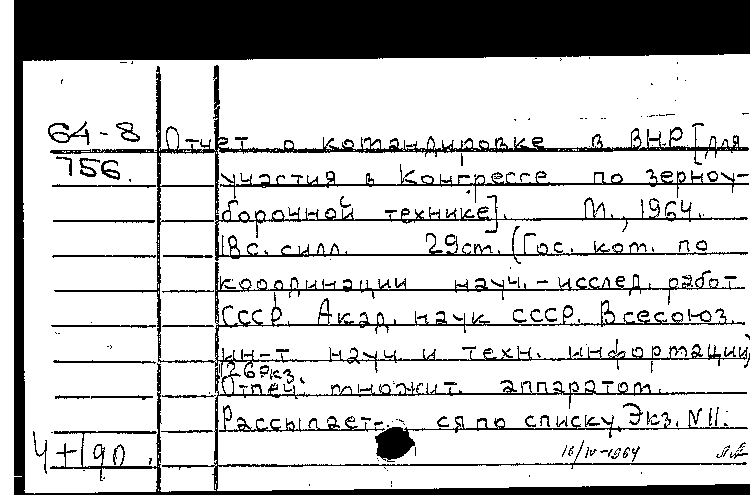 64-8 Отчет о командировке в ВНР [для
756. участия в Конгрессе по зерноу-
борочной технике]. М., 1964.
18с. с илл. 29см. (Гос. ком. по
координации науч.-исслед. работ
СССР. Акад. наук СССР. Всесоюз.
ин-т науч. и техн. информации)
(26экз.
Отпеч. множит. аппаратом.
Рассылает- ся по списку. Экз. N11.
Ч+1 дп.
16/IV-1964